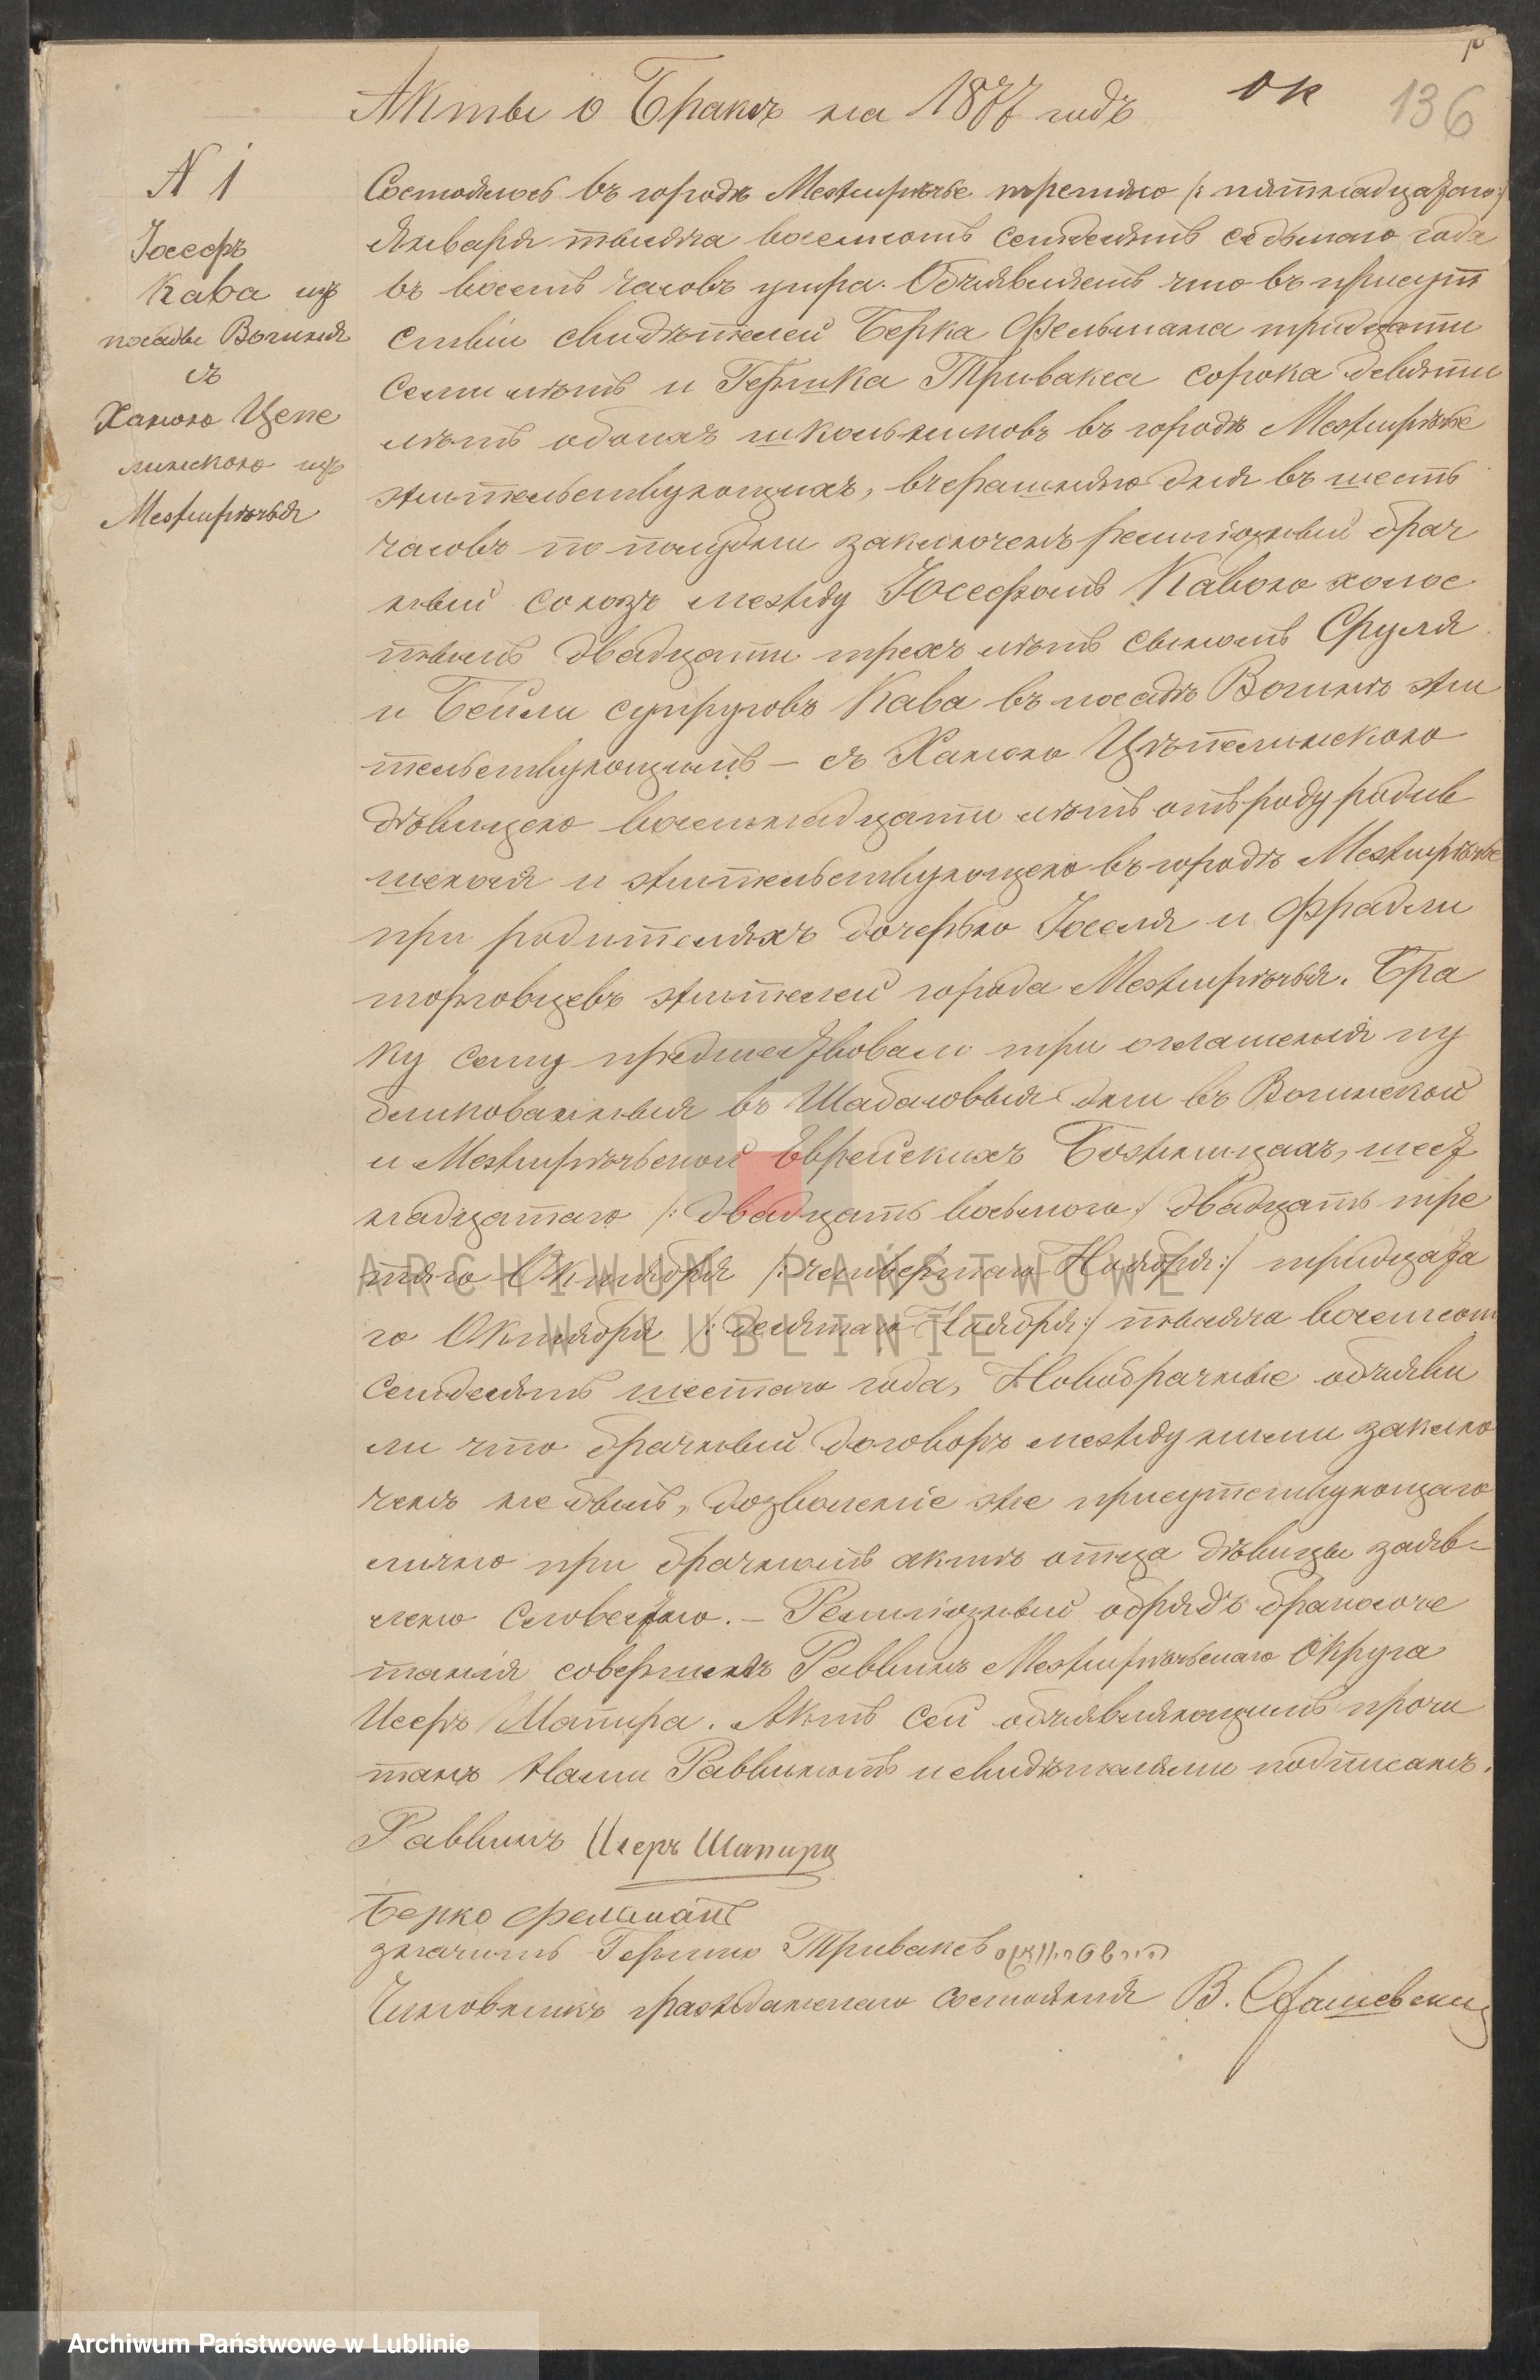 Акты о Бракѣ на 1877 годъ
ок
136
N 1
Іосефъ
Кава изъ
посады Вогиня
съ
Ханою Цепе
линскою изъ
Межирѣчья
Состоялось въ городѣ Межирѣчье третяго /: пятнадцатаго :/
Января тысяча восемсотъ семдесятъ седьмаго года
въ восемь часовъ утра. Объявляемъ что въ присут
ствіи свидѣтелей Берка Фельдмана тридцати
семи лѣтъ и Гершка Тривакса сорока девяти
лѣтъ обоихъ школьниковъ въ городѣ Межирѣчье
жительствующихъ, вчерашняго дня въ шесть
часовъ по полудни заключенъ религіозный брач
ный союзъ между Юсефомъ Кавою холос
тымъ двадцати трехъ лѣтъ сыномъ Сруля
и Бейли супруговъ Кава въ посадѣ Вогинѣ жи
тельствующимъ – съ Ханою Цѣпелинскою
дѣвицею восемнадцати лѣтъ отъ роду родив
шеюся и жительствующею въ городѣ Межирѣчье
при родителяхъ дочерью Іоселя и Фрадли
торговцевъ жителей города Межирѣчья. Бра
ку сему предшествовали три оглашенія пу
бликованныя въ Шабасовыя дни въ Вогинской
и Межирѣчьской Еврейскихъ Божницахъ, шест
надцатаго /: двадцать восьмого :/ двадцать тре
тяго Октября /: четвертаго Ноября :/ тридцата
го Октября /: десятаго Ноября :/ тысяча восемсот
семдесятъ шестаго года, Новобрачные объяви
ли что брачный договоръ между ними заклю
ченъ не былъ, дозволеніе же присутствующаго
лично при брачномъ актѣ отца дѣвицы заяв-
лено словестно. – Религіозный обрядъ бракосоче
танія совершилъ Раввинъ Межирѣчьскаго Округа
Исеръ Шапира. Актъ сей объявляющимъ прочи
танъ Нами Раввиномъ и свидѣтелями подписанъ.
Раввинъ Исеръ Шапира
Берко Фелдманъ
значитъ Гершко Триваксъ
Чиновникъ гражданскаго состоянія В. Сташевскій
ARCHIWUM PAŃSTWOWE
W LUBLINIE
Archiwum Państwowe w Lublinie